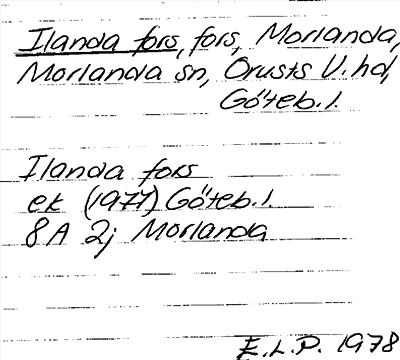 Ilanda fors, fors, Morlanda,
Morlanda sn, Orusts V. hd,
Göteb. l.
Ilanda fors
ek (1977) Göteb. l.
8A 2j Morlanda
E.L.P. 1978